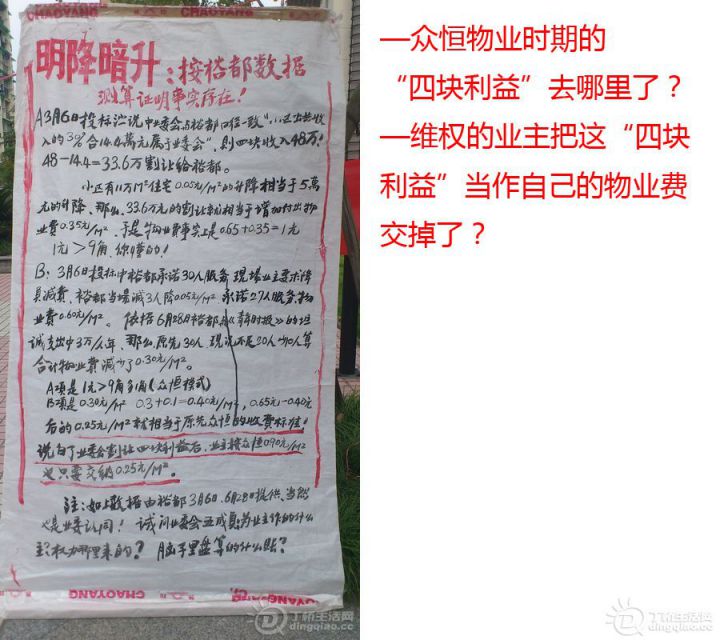 CHAOYANG
明降暗升：按裕都数据
测算证明事实存在！
A 3月6日投标汇说中业委会与裕都口径一致"公共收
入的3%合14.4万元属于业委会"，则四块收入48万！
48-14.4=33.6万割让给裕都。
小区有11万M²住宅0.05元/M²的升降相当于5万
元的升降、那么、33.6万元的割让就相当于增加付出物
业费0.35元/M²、于是物业费事实上是0.65+0.35=1元
1元>9角、你懂的！
B：3月6日投标中裕都承诺30人服务现场业主要求降
员减费、裕都当场减3人降0.05元/M²承诺27人服务、物
业费0.60元/M²。依据6月28日裕都
诚支出中3万/人年、那么、原先30人、现
合计物业费减少了0.30元/M²。
A项是1元>9角多角（众恒模式）
B项是0.30元/M² 0.3+0.1=0.40元/M²，0.65元-0.40元
后的0.25元/M²就相当于原先众恒的收费标准！
说白了业委会割让四块利益后、业主按众恒0.90元/M²
只要交纳0.25元/M²。
注：如上数据由裕都3月6日、6月28日提供、当然
也是业委认同！试问业委会五成员为业主作的什么
主？权力哪里来的？脑子里盘算的什么账？
CHAOYANG
一众恒物业时期的
“四块利益”去哪里了？
一维权的业主把这“四块
利益”当作自己的物业费
交掉了？
丁桥生活网
dingqiao.cc
丁桥生活网
dingqiao.cc